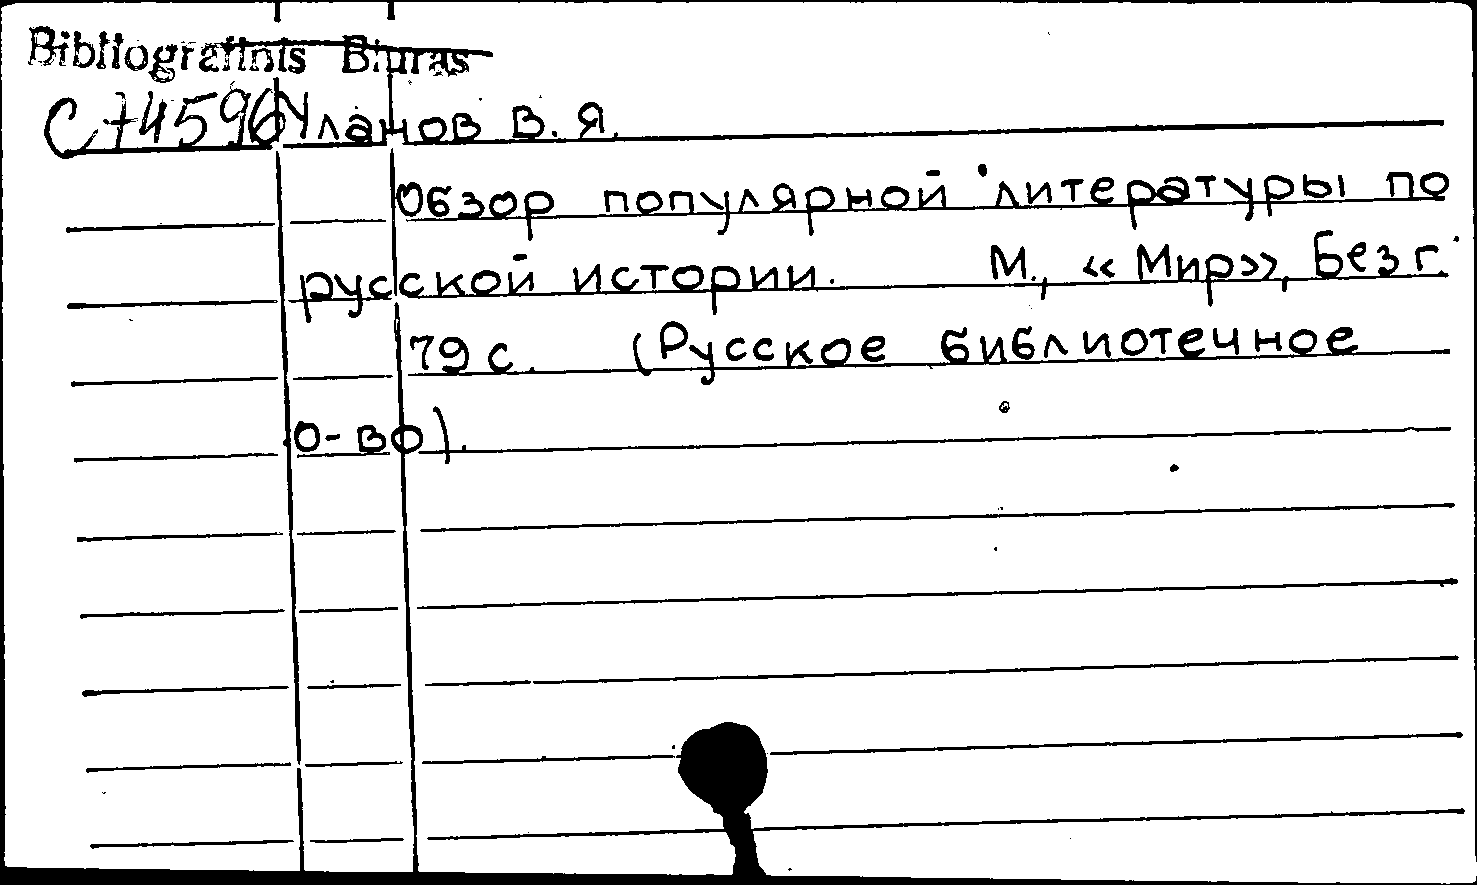 Bibliografinis Biuras
С74596 Уланов В. Я.
Обзор популярной литературы по
русской истории. М., «Мир», Без г.
79 с. (Русское библиотечное
о-во).